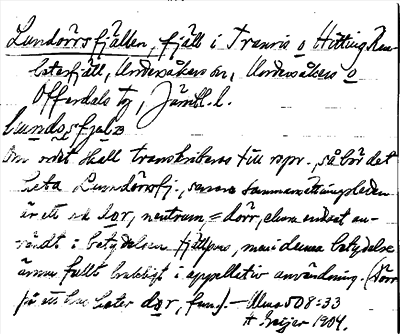 Lundörrsfjällen, fjäll i Tranris o Hitting Ren-
betesfjäll, Undersåkers sn, Undersåkers o
Offerdals tg, Jämtl. l.
lundo̱sfjelz
Om ordet skall transkriberas till rspr., så bör det
heta Lundörrsfj., senare sammansättningsleden
är ett dor, neutrum = dörr, ehuru endast an-
vändt i betydelsen fjällpass, men i denna betydelse
ännu fullt brukligt i appellativ användning. (Dörr
på ett hus heter dor, fem.). — Uma 508:33
H. Geijer 1904.